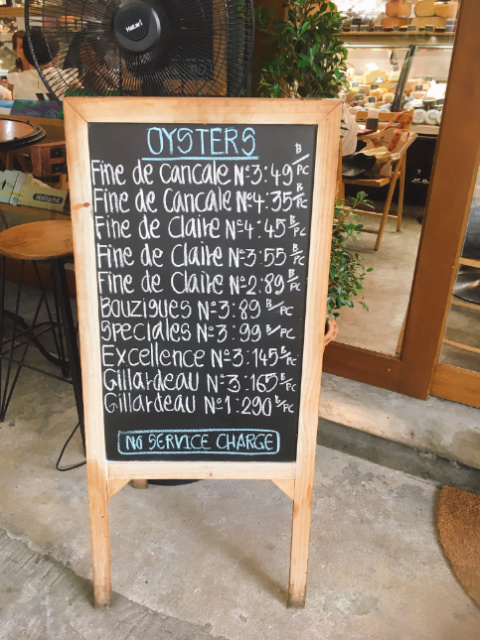 Hatari
OYSTERS
Fine de Cancale Nº3:49 B/PC
Fine de Cancale Nº4:35 B/PC
Fine de Claire Nº4:45 B/PC
Fine de Claire Nº3:55 B/PC
Fine de Claire Nº2:89 B/PC
Bouzigues Nº3:89 B/PC
Speciales Nº3:99 B/PC
Excellence Nº3:145 B/PC
Gillardeau Nº3:165 B/PC
Gillardeau Nº1:290 B/PC
NO SERVICE CHARGE
Holland